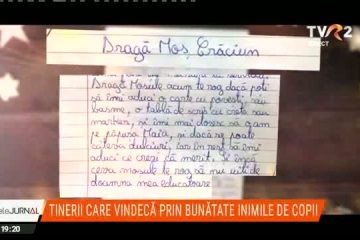 TVR2
Dragă Moș Crăciun
Dragă Moșule acum te rog dacă poți
să îmi aduci o carte cu povești sau
basme, o tablă de scris cu creta sau
marker, și îmi mai doresc să o am
pe păpușa Maia, și dacă se poate
câteva dulciuri, iar în rest să îmi
aduci ce crezi că merit, și încă
ceva moșule te rog să nu uiți de
doamna mea educatoare
TELEJURNAL
TINERII CARE VINDECĂ PRIN BUNĂTATE INIMILE DE COPII
19:20